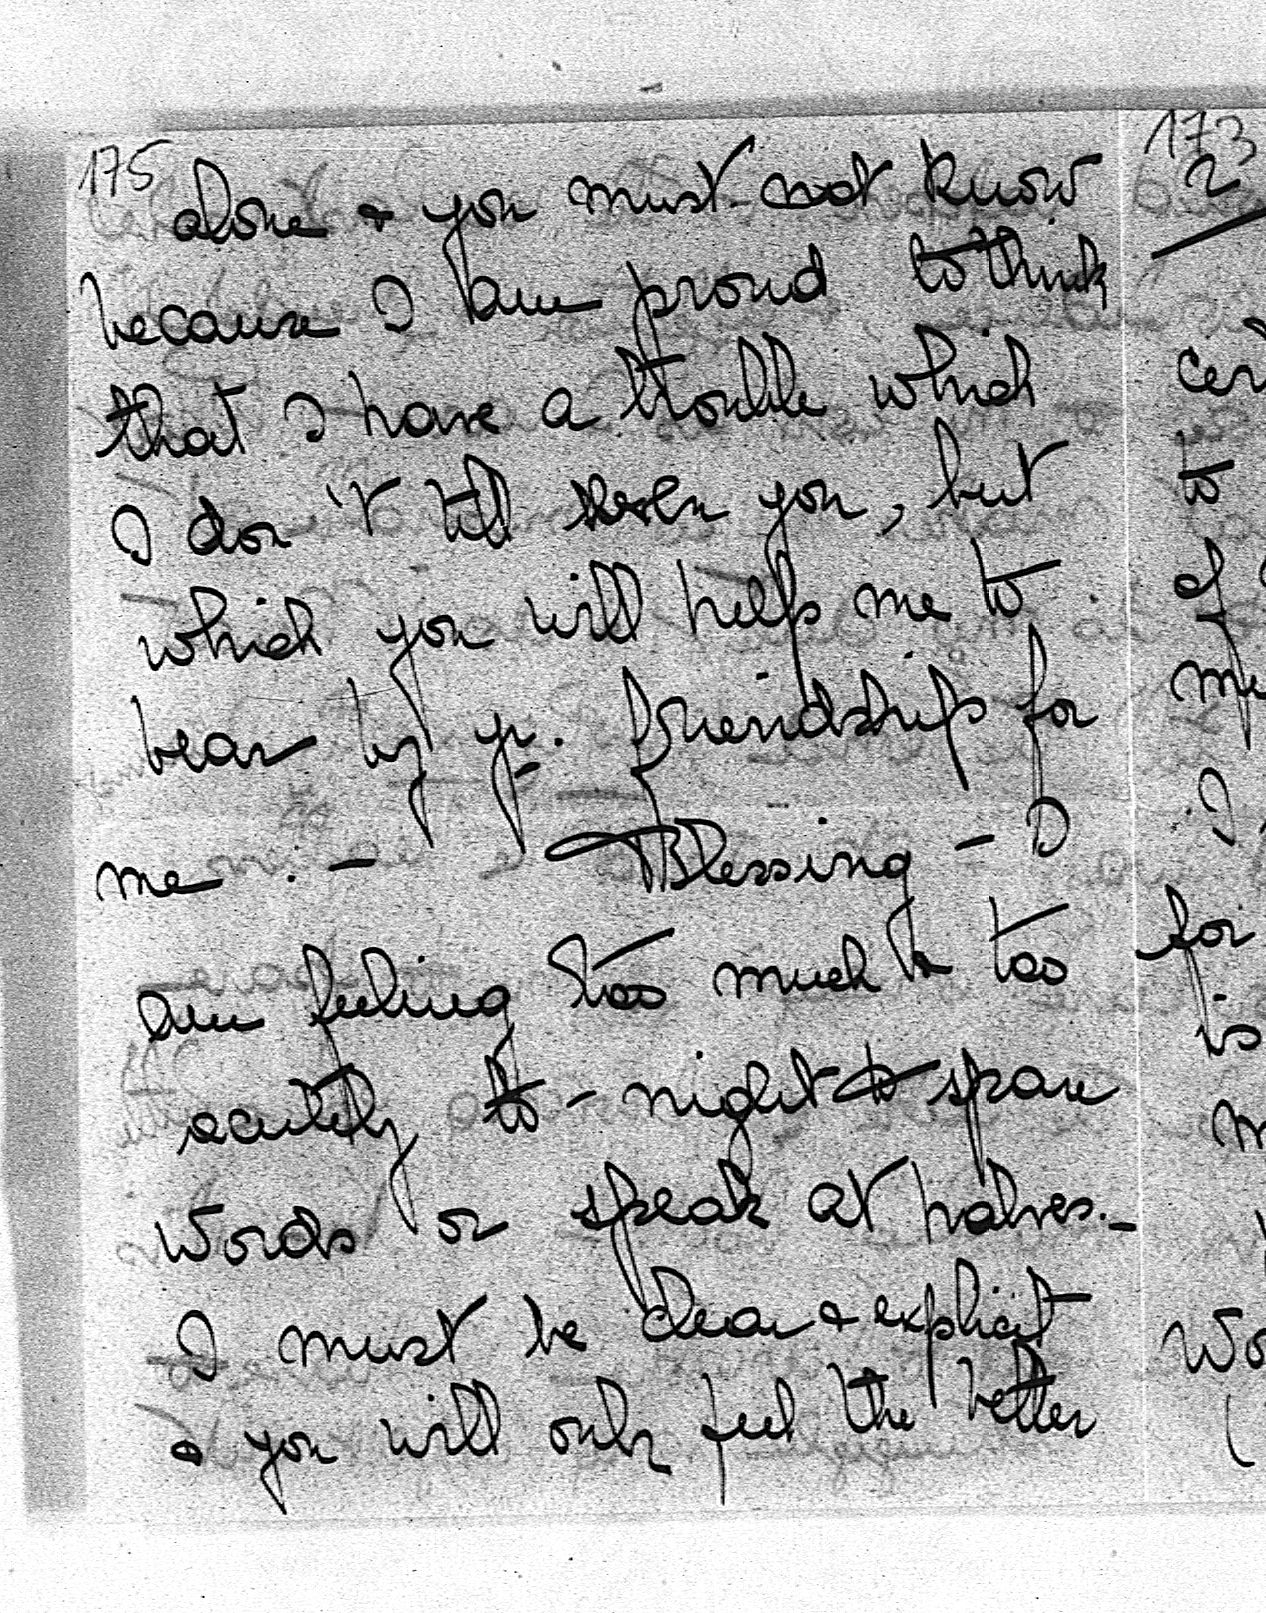 175
alone & you must not know
because I am proud to think
that I have a trouble which
I don't tell even you, but
which you will help me to
bear by yr. friendship for
me. - Blessing - I
am feeling too much & too
acutely to-night to spare
words or speak at halves. -
I must be clear & explicit
& you will only feel the better
173
2
to
of
for
is